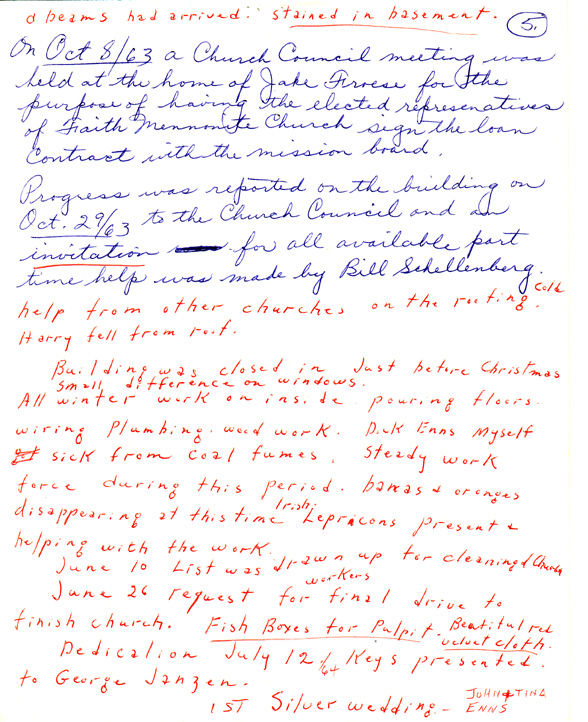 & beams had arrived. stained in basement. 5.
On Oct 8/63 a Church Council meeting was
held at the home of Jake Froese for the
purpose of having the elected represenatives
of Faith Mennonite Church sign the loan
Contract with the mission board.
Progress was reported on the building on
Oct. 29/63 to the Church Council and an
invitation for all available part
time help was made by Bill Schellenberg.
help from other churches on the roofing. Cold
Harry fell from roof.
Building was closed in Just before Christmas
small difference on windows.
All winter work on inside pouring floors.
wiring Plumbing. wood work. Dick Enns Myself
sick from coal fumes. Steady work
force during this period. & oranges
disappearing at this time Irish Lepricons present &
helping with the work.
June 10 List was drawn up for cleaning Church
June 26 request for workers final drive to
finish church. Fish Boxes for Pulpit. Beautiful red
velvet cloth.
Dedication July 12/64 Keys presented.
to George Janzen.
1ST Silver wedding - JOHN & TINA
ENNS